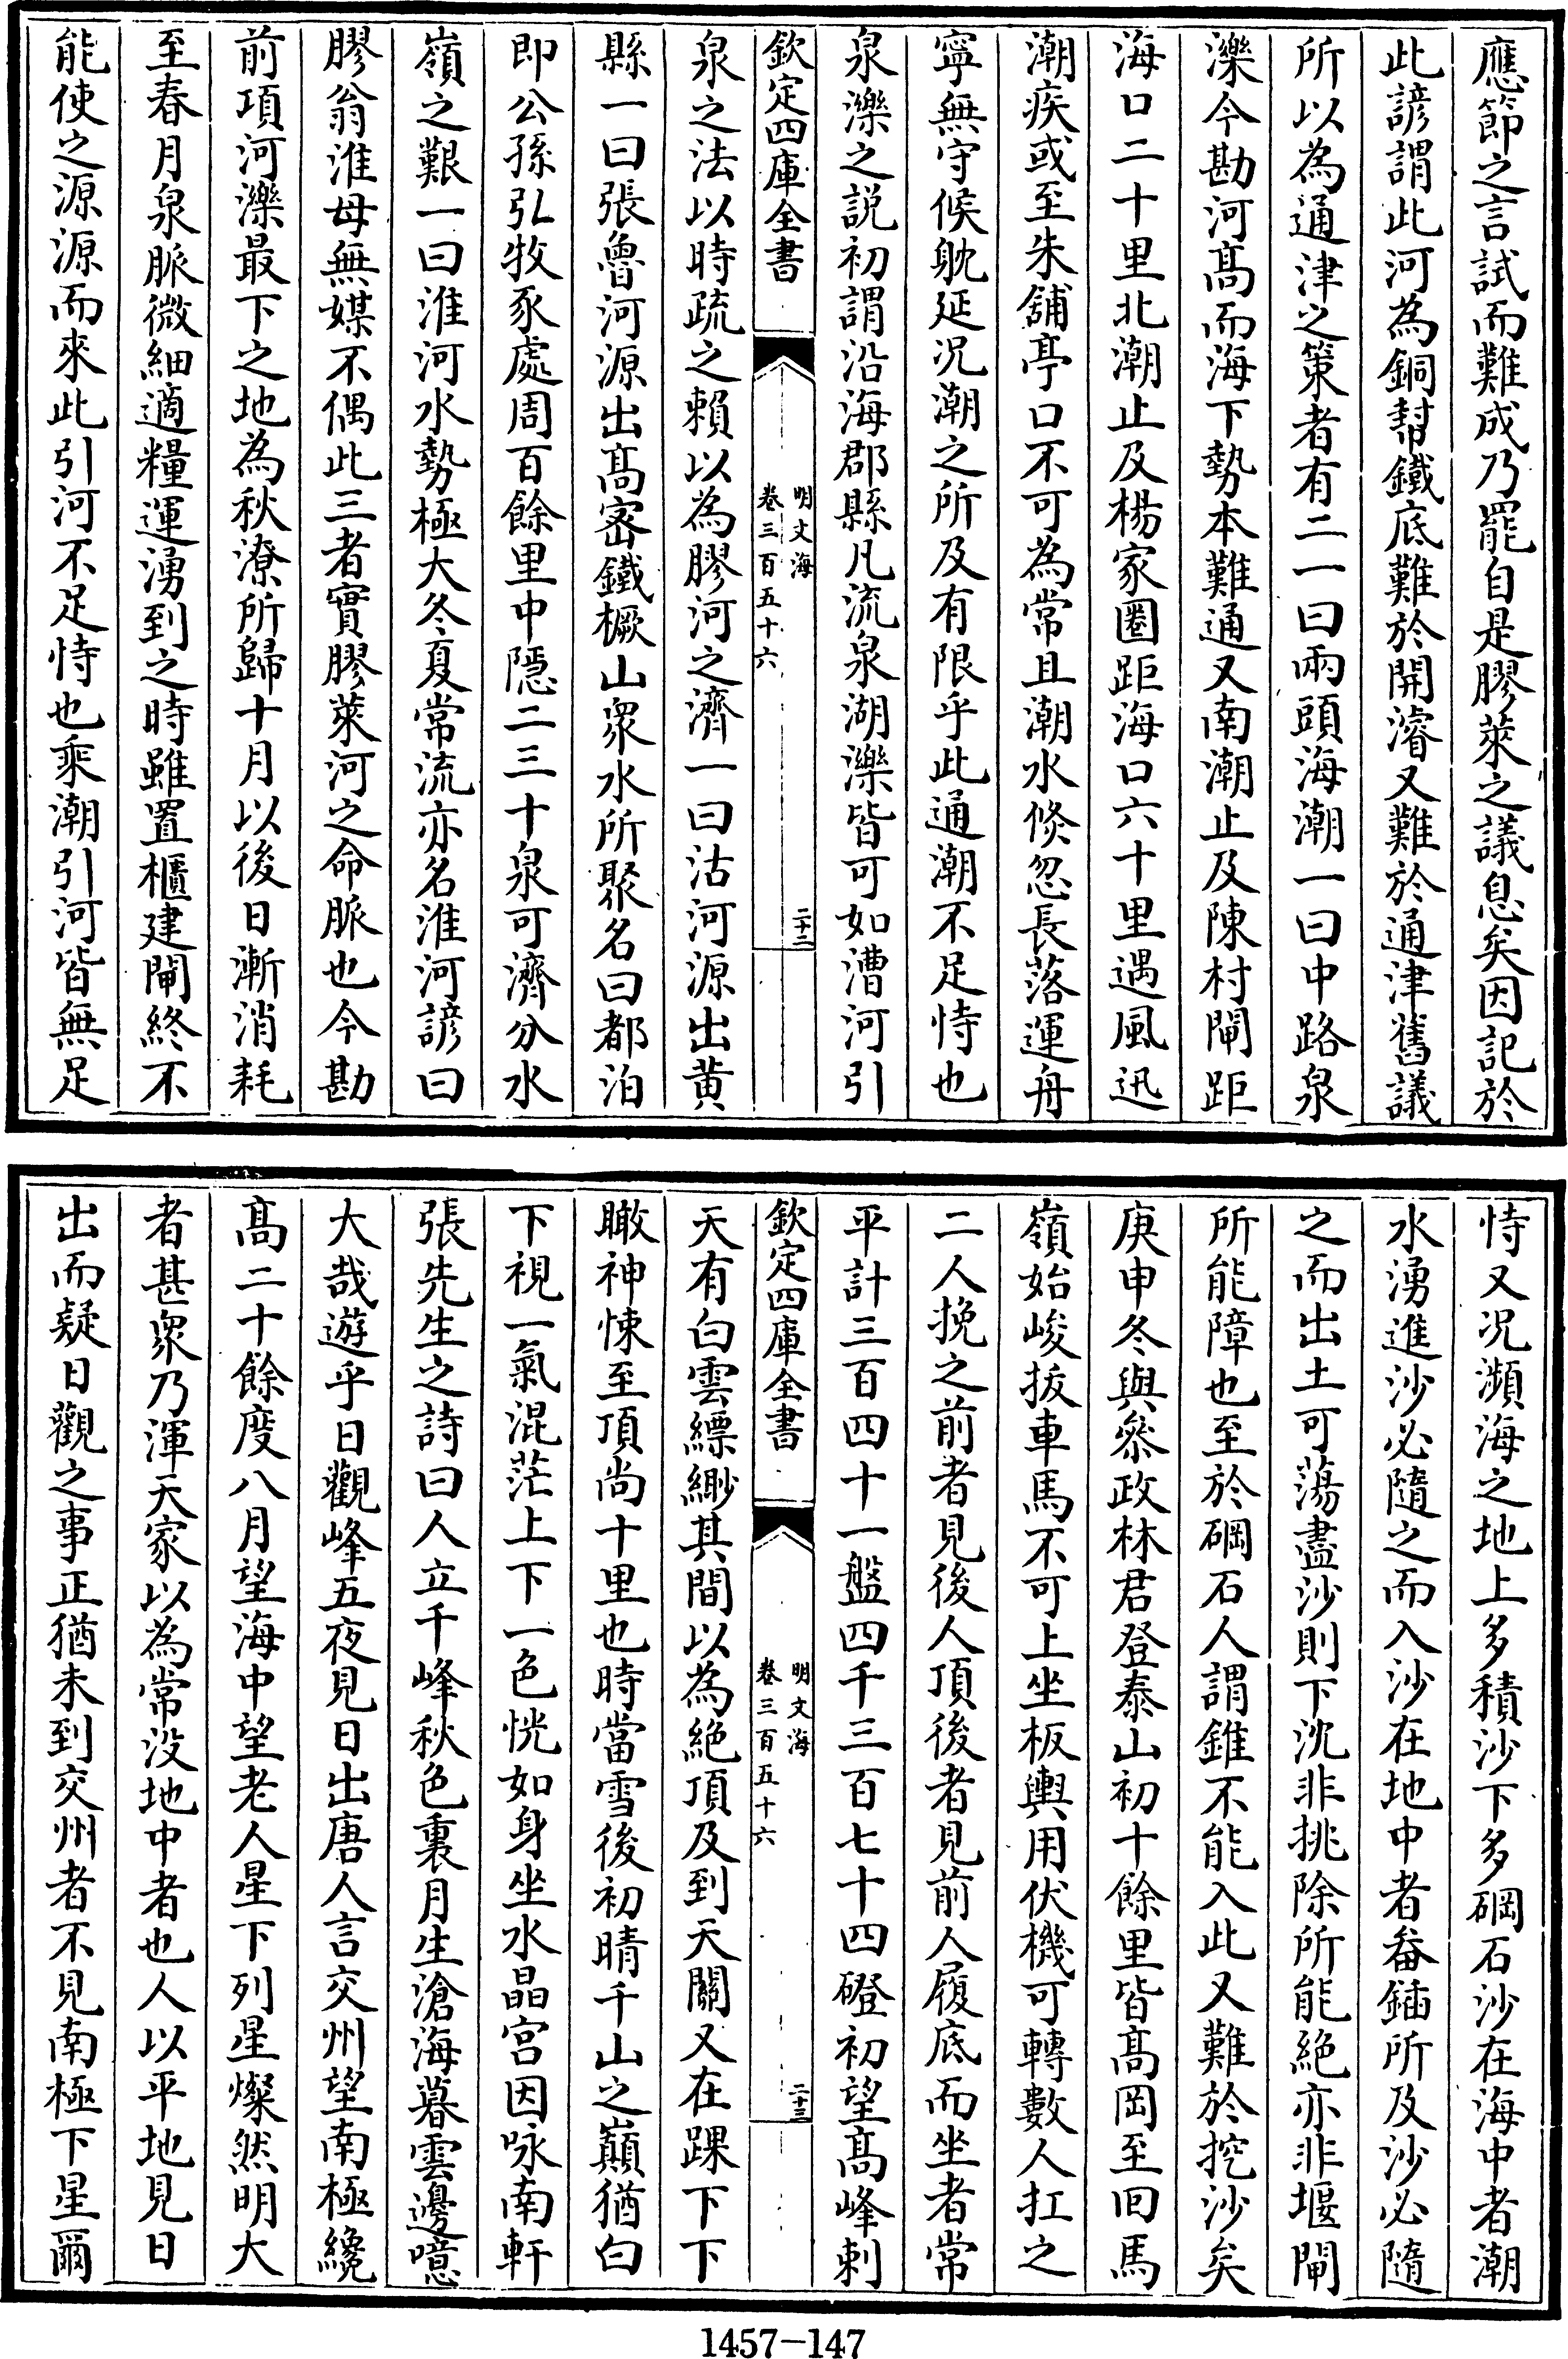 應節之言試而難成乃罷自是膠萊之議息矣因記於
此諺謂此河為銅幇鐵底難於開濬又難於通津舊議
所以為通津之策者有二一曰兩頭海潮一曰中路泉
濼今勘河髙而海下勢本難通又南潮止及陳村閘距
海口二十里北潮止及楊家圈距海口六十里遇風迅
潮疾或至朱舖亭口不可為常且潮水倏忽長落運舟
寧無守候躭延况潮之所及有限乎此通潮不足恃也
泉濼之説初謂沿海郡縣凡流泉湖濼皆可如漕河引
欽定四庫全書
明文海
卷三百五十六
二十二
泉之法以時疏之賴以為膠河之濟一曰沽河源出黄
縣一曰張魯河源出髙宻鐵橛山衆水所聚名曰都泊
即公孫弘牧豕處周百餘里中隱二三十泉可濟分水
嶺之艱一曰淮河水勢極大冬夏常流亦名淮河諺曰
膠翁淮母無媒不偶此三者實膠萊河之命脈也今勘
前項河濼最下之地為秋潦所歸十月以後日漸消耗
至春月泉脈微細適糧運湧到之時雖置櫃建閘終不
能使之源源而來此引河不足恃也乘潮引河皆無足
恃又况瀕海之地上多積沙下多磵石沙在海中者潮
水湧進沙必隨之而入沙在地中者畚鍤所及沙必隨
之而出土可蕩盡沙則下沈非挑除所能絶亦非堰閘
所能障也至於磵石人謂錐不能入此又難於挖沙矣
庚申冬與叅政林君登泰山初十餘里皆髙岡至囘馬
嶺始峻拔車馬不可上坐板輿用伏機可轉數人扛之
二人挽之前者見後人頂後者見前人履底而坐者常
平計三百四十一盤四千三百七十四磴初望髙峰刺
欽定四庫全書
明文海
卷三百五十六
二十三
天有白雲縹緲其間以為絶頂及到天關又在踝下下
瞰神悚至頂尚十里也時當雪後初晴千山之巔猶白
下視一氣混茫上下一色恍如身坐水晶宫因咏南軒
張先生之詩曰人立千峰秋色裏月生滄海暮雲邊噫
大哉遊乎日觀峰五夜見日出唐人言交州望南極纔
髙二十餘度八月望海中望老人星下列星燦然明大
者甚衆乃渾天家以為常没地中者也人以平地見日
出而疑日觀之事正猶未到交州者不見南極下星爾
1457-147